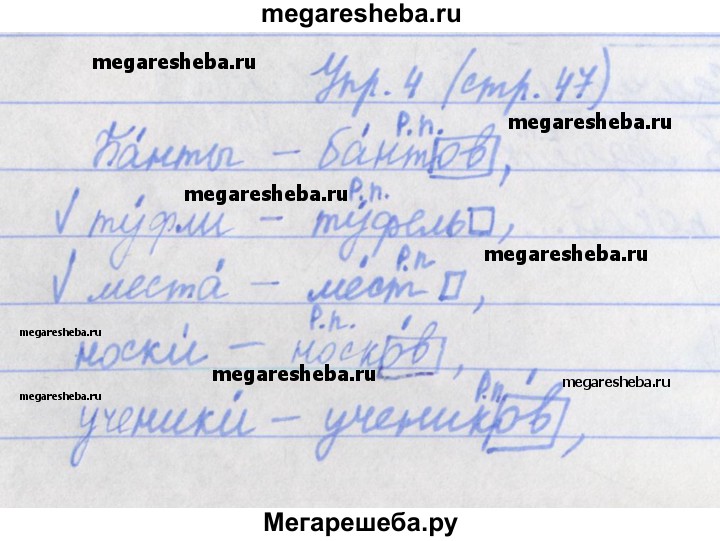 megaresheba.ru
megaresheba.ru
Упр. 4 (стр. 47)
megaresheba.ru
Р.п.
Ба́нты – ба́нтов,
megaresheba.ru
Р.п.
√ ту́фли – ту́фель□,
megaresheba.ru
Р.п.
√ места́ – ме́ст□,
megaresheba.ru
Р.п.
носки́ – носко́в,
megaresheba.ru
megaresheba.ru
megaresheba.ru
Р.п.
ученики́ – ученико́в,
Мегарешеба.ру